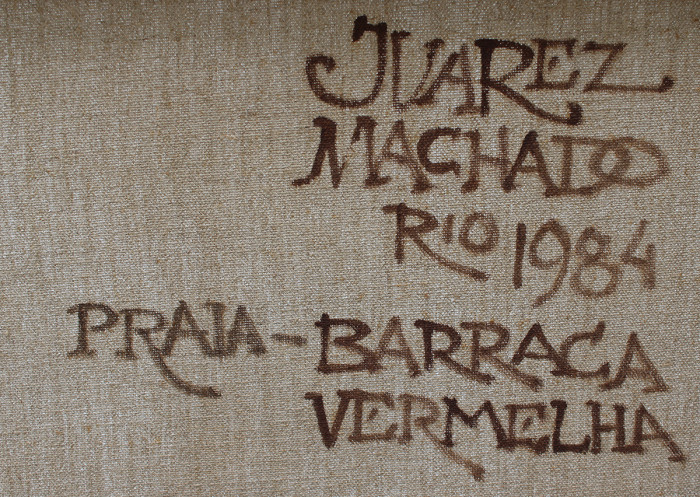 JUAREZ
MACHADO
RIO 1984
PRAIA - BARRACA
VERMELHA